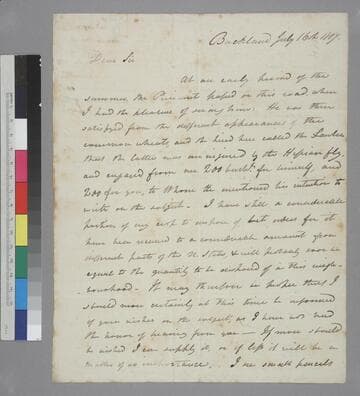 Buckland July 16th 1807.
Dear Sir
At an early period of the
summer, the President passed on this road when
I had the pleasure of seeing him. He was then
satisfied from the different appearances of the
common wheat, and the kind here called the Lawler
that the latter was uninjured by the Hessian fly,
and engaged from me 200 bushls. for himself, and
200 for you, to whom he mentioned his intention to
write on the subject. I have still a considerable
portion of my crop to dispose of but orders for it
have been received to a considerable amount from
different parts of the U. States & will probably soon be
equal to the quantity to be disposed of in this neigh-
bourhood. It may therefore be proper that I
should more certainly at this time be informed
of your wishes on the subject, as I have not had
the honor of hearing from you — If more should
be wished I can supply it, or if less it will be a
matter of no inconvenience. In small parcels